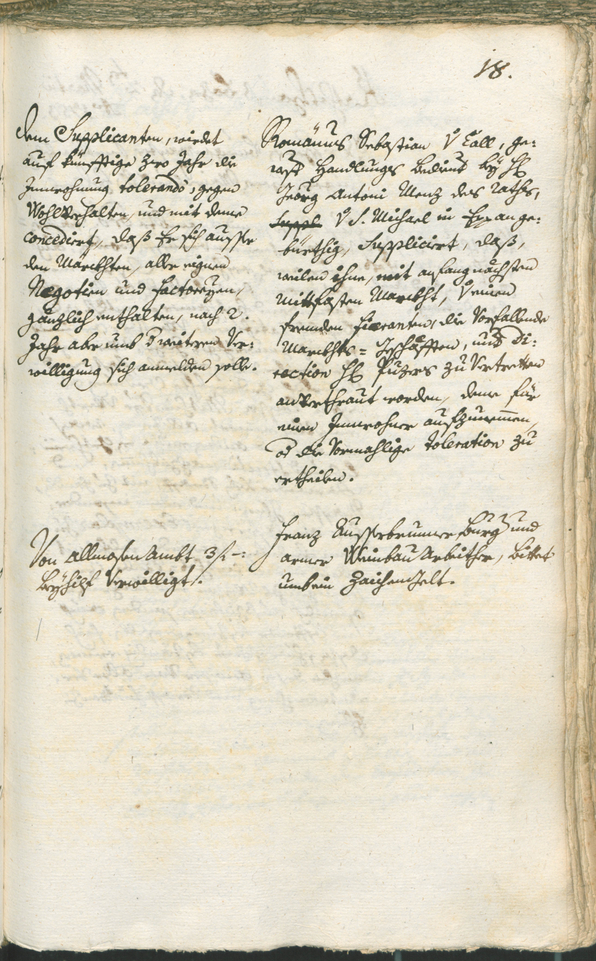 18.
Dem Supplicanten, wirdet
auf künfftige zwo Jahr die
Innwohnung tolerando, gegen
Wohlverhalten, und mit deme
concediert, daß Er sich ausser
den Märckhten, aller eignen
Negotien und Factoreyen,
gänzlich enthalten, nach 2.
Jahr aber umb weiteren Ver:
willigung sich anmelden solle.
Romänus Sebastian V Call, ge:
west Handlungs bedient bey H
Georg Antoni Menz des Raths,
V S. Michael in Eppan ge:
bürthig, Suppliciert, daß,
weilen ihne, mit anfang nächsten
Mittfasten Marckht, Veinen
frembden Fieranten, die Vorfallende
Marckhts=Geschäfften, und Di:
rection H Puzers zu Vertretten
anverthraut worden, deme für
einen Innwohner aufzunemmen,
od die Vormahlige toleration zu
ertheilen.
Von Allmosen Ambt 3 f –:
beyhilf Verwilligt.
Franz Ausserbrunner burg und
armer Weinbau Arbeither, bittet
umb ein Zaichengelt.